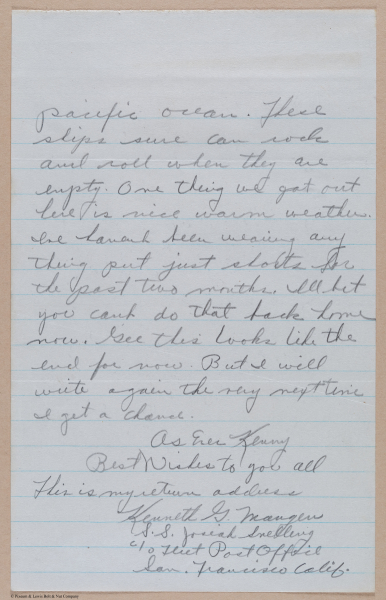 pacific ocean. These
ships sure can rock
and roll when they are
empty. One thing we got out
here is nice warm weather.
I've havent been wearing any
thing put just shorts for
the past two months. I'll bet
you cant do that back home
now. Gee this looks like the
end for now. But I will
write again the very next time
I get a chance.
As Ever Kenny
Best Wishes to you all
This is my return address
Kenneth G. Mangen
S.S. Joseph Snelling
c/o Fleet Post Office
San. Francisco Calif.
© Frances & Lewis, Bob & Nat Company